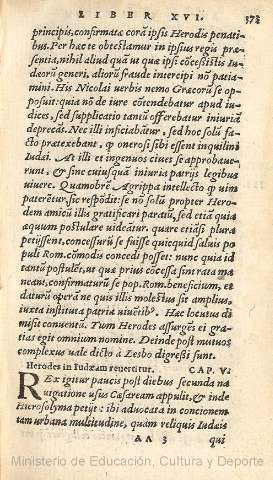 LIBER XVI. 373
principis, confirmatæ corã ipsis Herodis penati
bus. Per hæc te obtestamur in ipsius regis præ
sentia, nihil aliud quā ut quæ ipsi cõcessistis Iu
dæorū generi, aliorū fraude intercipi nō patia-
mini. His Nicolai uerbis nemo Græcorū se op-
posuit: quia nō de iure cōtendebatur apud iu-
dices, sed supplicatio tantū offerebatur iniuriā
deprecās. Nec illi inficiabātur, sed hoc solū fa-
cto prætexebant, q, onerosi sibi essent inquilini
Iudæi. At illi et ingenuos ciues se approbaue-
runt, & sine cuiusquā iniuria patrijs legibus
uiuere. Quamobrē Agrippa intellecto q, uim
paterētur, sic respōdit: se nō solū propter Hero-
dem amicū illis gratificari paratū, sed etiā quia
æquum postulare uideātur. quare etiāsi plura
petijssent, concessurū se fuisse quicquid saluis po
puli Rom. cōmodis concedi posset: nunc quia id
tantū postulēt, ut quæ prius cōcessa sint rata ma
neant, confirmaturū se pop. Rom. beneficium, et
daturū operā ne quis illis molestus sit amplius
iuxta instituta patria uiuētib⁹. Hæc locutus di
misit conuentū. Tum Herodes assurgēs ei gra-
tias egit omnium nomine. Deinde post mutuos
complexus uale dicto à Lesbo digressi sunt.
Herodes in Iudæam reuertitur. CAP. VI
REx igitur paucis post diebus secunda na
uigatione usus Cæsaream appulit, & inde
Hierosolyma petijt: ibi aduocata in concionem
tam urbana multitudine, quàm reliquis Iudæis
AA 3 qui
Ministerio de Educación, Cultura y Deporte